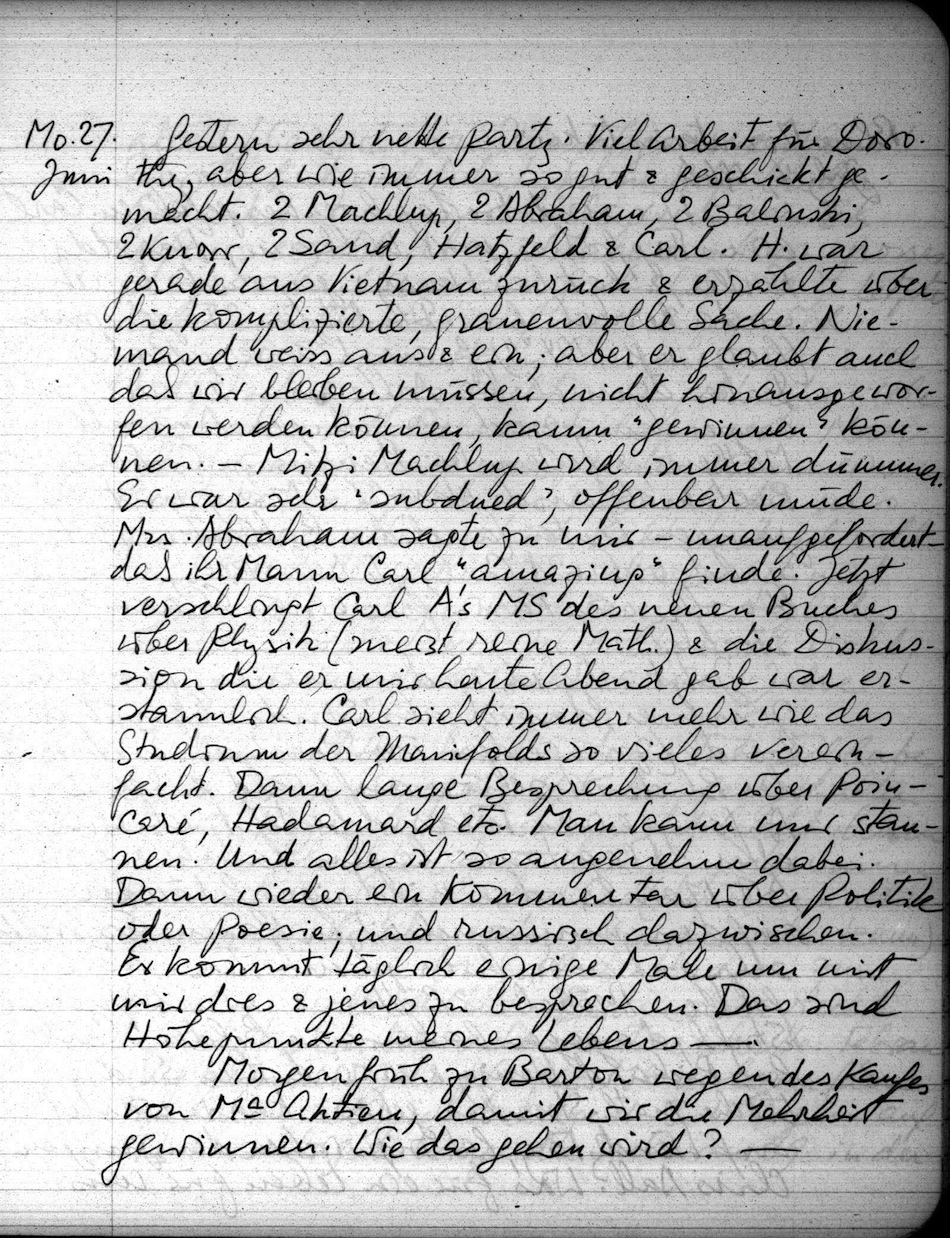 Mo. 27. Gestern sehr nette Party. Viel Arbeit für Doro-
Juni thy, aber wie immer so gut & geschickt ge-
macht. 2 Machlup, 2 Abraham, 2 Balinski,
2 Knorr, 2 Sand, Hatzfeld & Carl. H. war
gerade aus Vietnam zurück & erzählte über
die komplizierte, grauenvolle Sache. Nie-
mand weiss aus & ein; aber er glaubt auch
daß wir bleiben müssen, nicht hinausgewor-
fen werden können, kaum "gewinnen" kön-
nen. – Mitzi Machlup wird immer dümmer.
Er war sehr 'subdued', offenbar müde.
Mrs. Abraham sagte zu mir – unaufgefordert –
daß ihr Mann Carl "amazing" finde. Jetzt
verschlingt Carl A's MS des neuen Buches
über Physik (meist reine Math.) & die Diskus-
sion die er mir heute Abend gab war er-
staunlich. Carl sieht immer mehr wie das
Studium der Manifolds so vieles verein-
facht. Dann lange Besprechung über Poin-
caré, Hadamard etc. Man kann nur stau-
nen. Und alles ist so angenehm dabei.
Dann wieder ein Kommentar über Politik
oder Poesie; und russisch dazwischen.
Er kommt täglich einige Male um mit
mir dies & jenes zu besprechen. Das sind
Höhepunkte meines Lebens —.
Morgen früh zu Barton wegen des Kaufes
von Ma Aktien, damit wir die Mehrheit
gewinnen. Wie das gehen wird? —